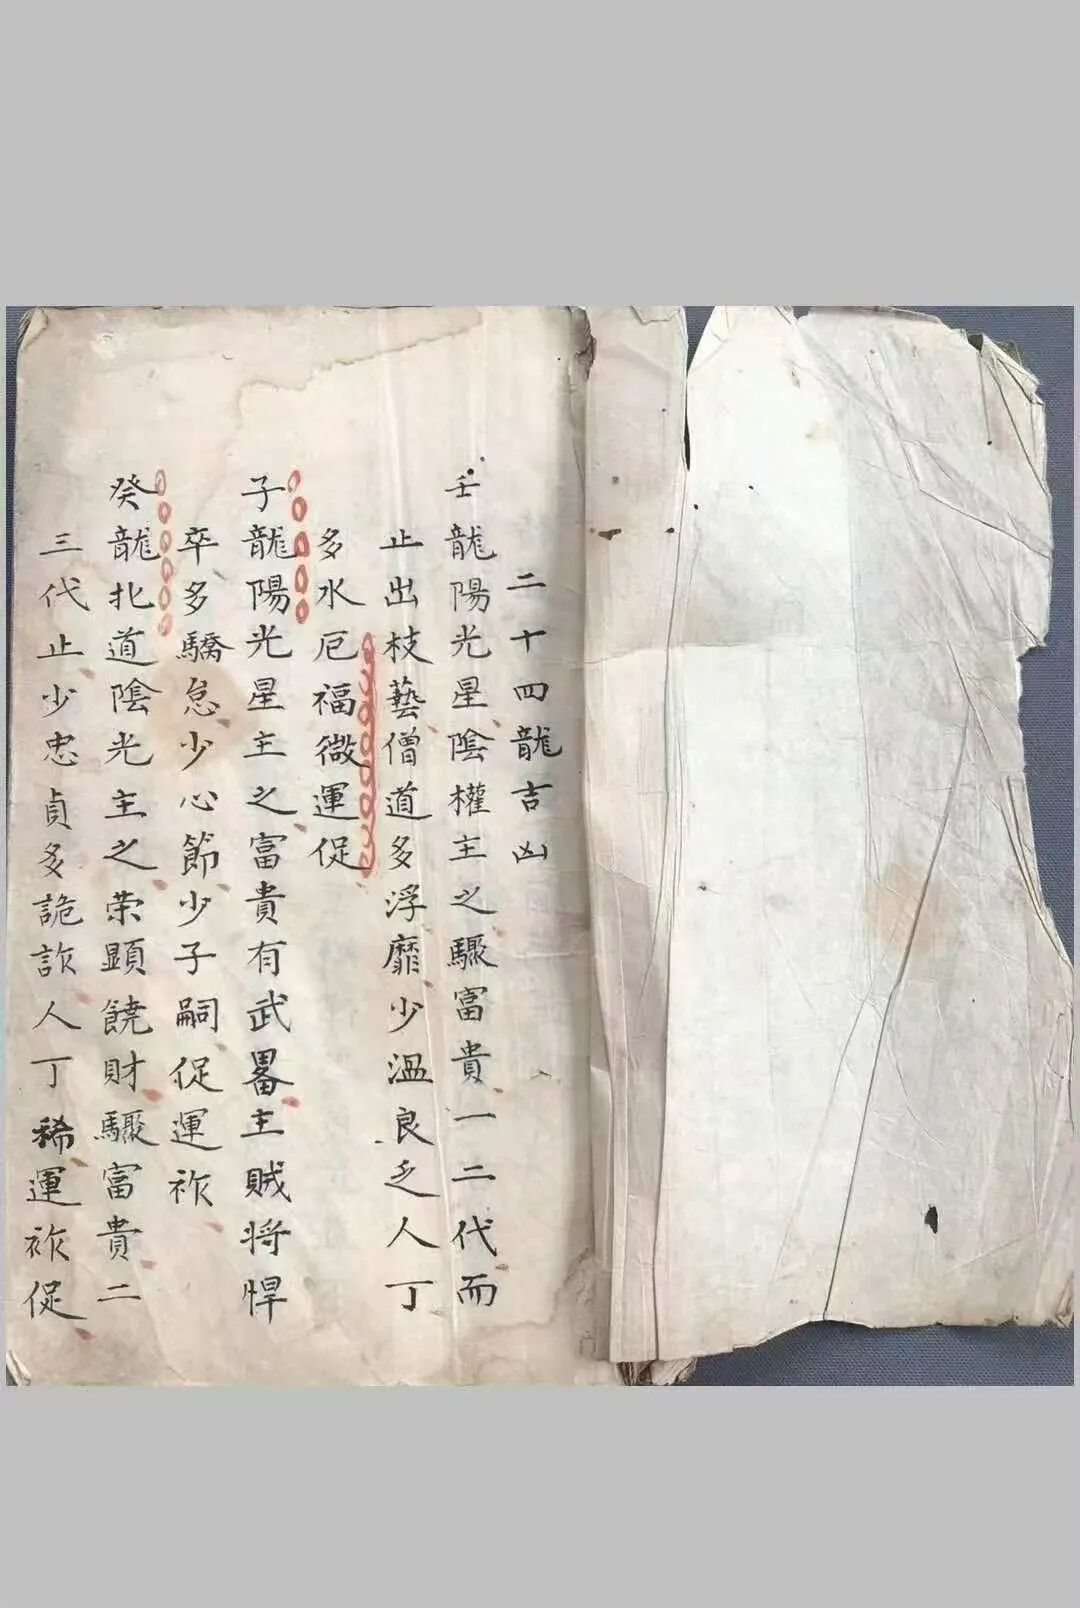 二十四龍吉凶
壬龍陽光星陰權主之驟富貴一二代而
止出枝藝僧道多浮靡少溫良乏人丁
多水厄福微運促
子龍陽光星主之富貴有武畧主賊将悍
卒多驕怠少心節少子嗣促運祚
癸龍北道陰光主之荣顯饒財驟富貴二
三代止少忠貞多詭詐人丁稀運祚促